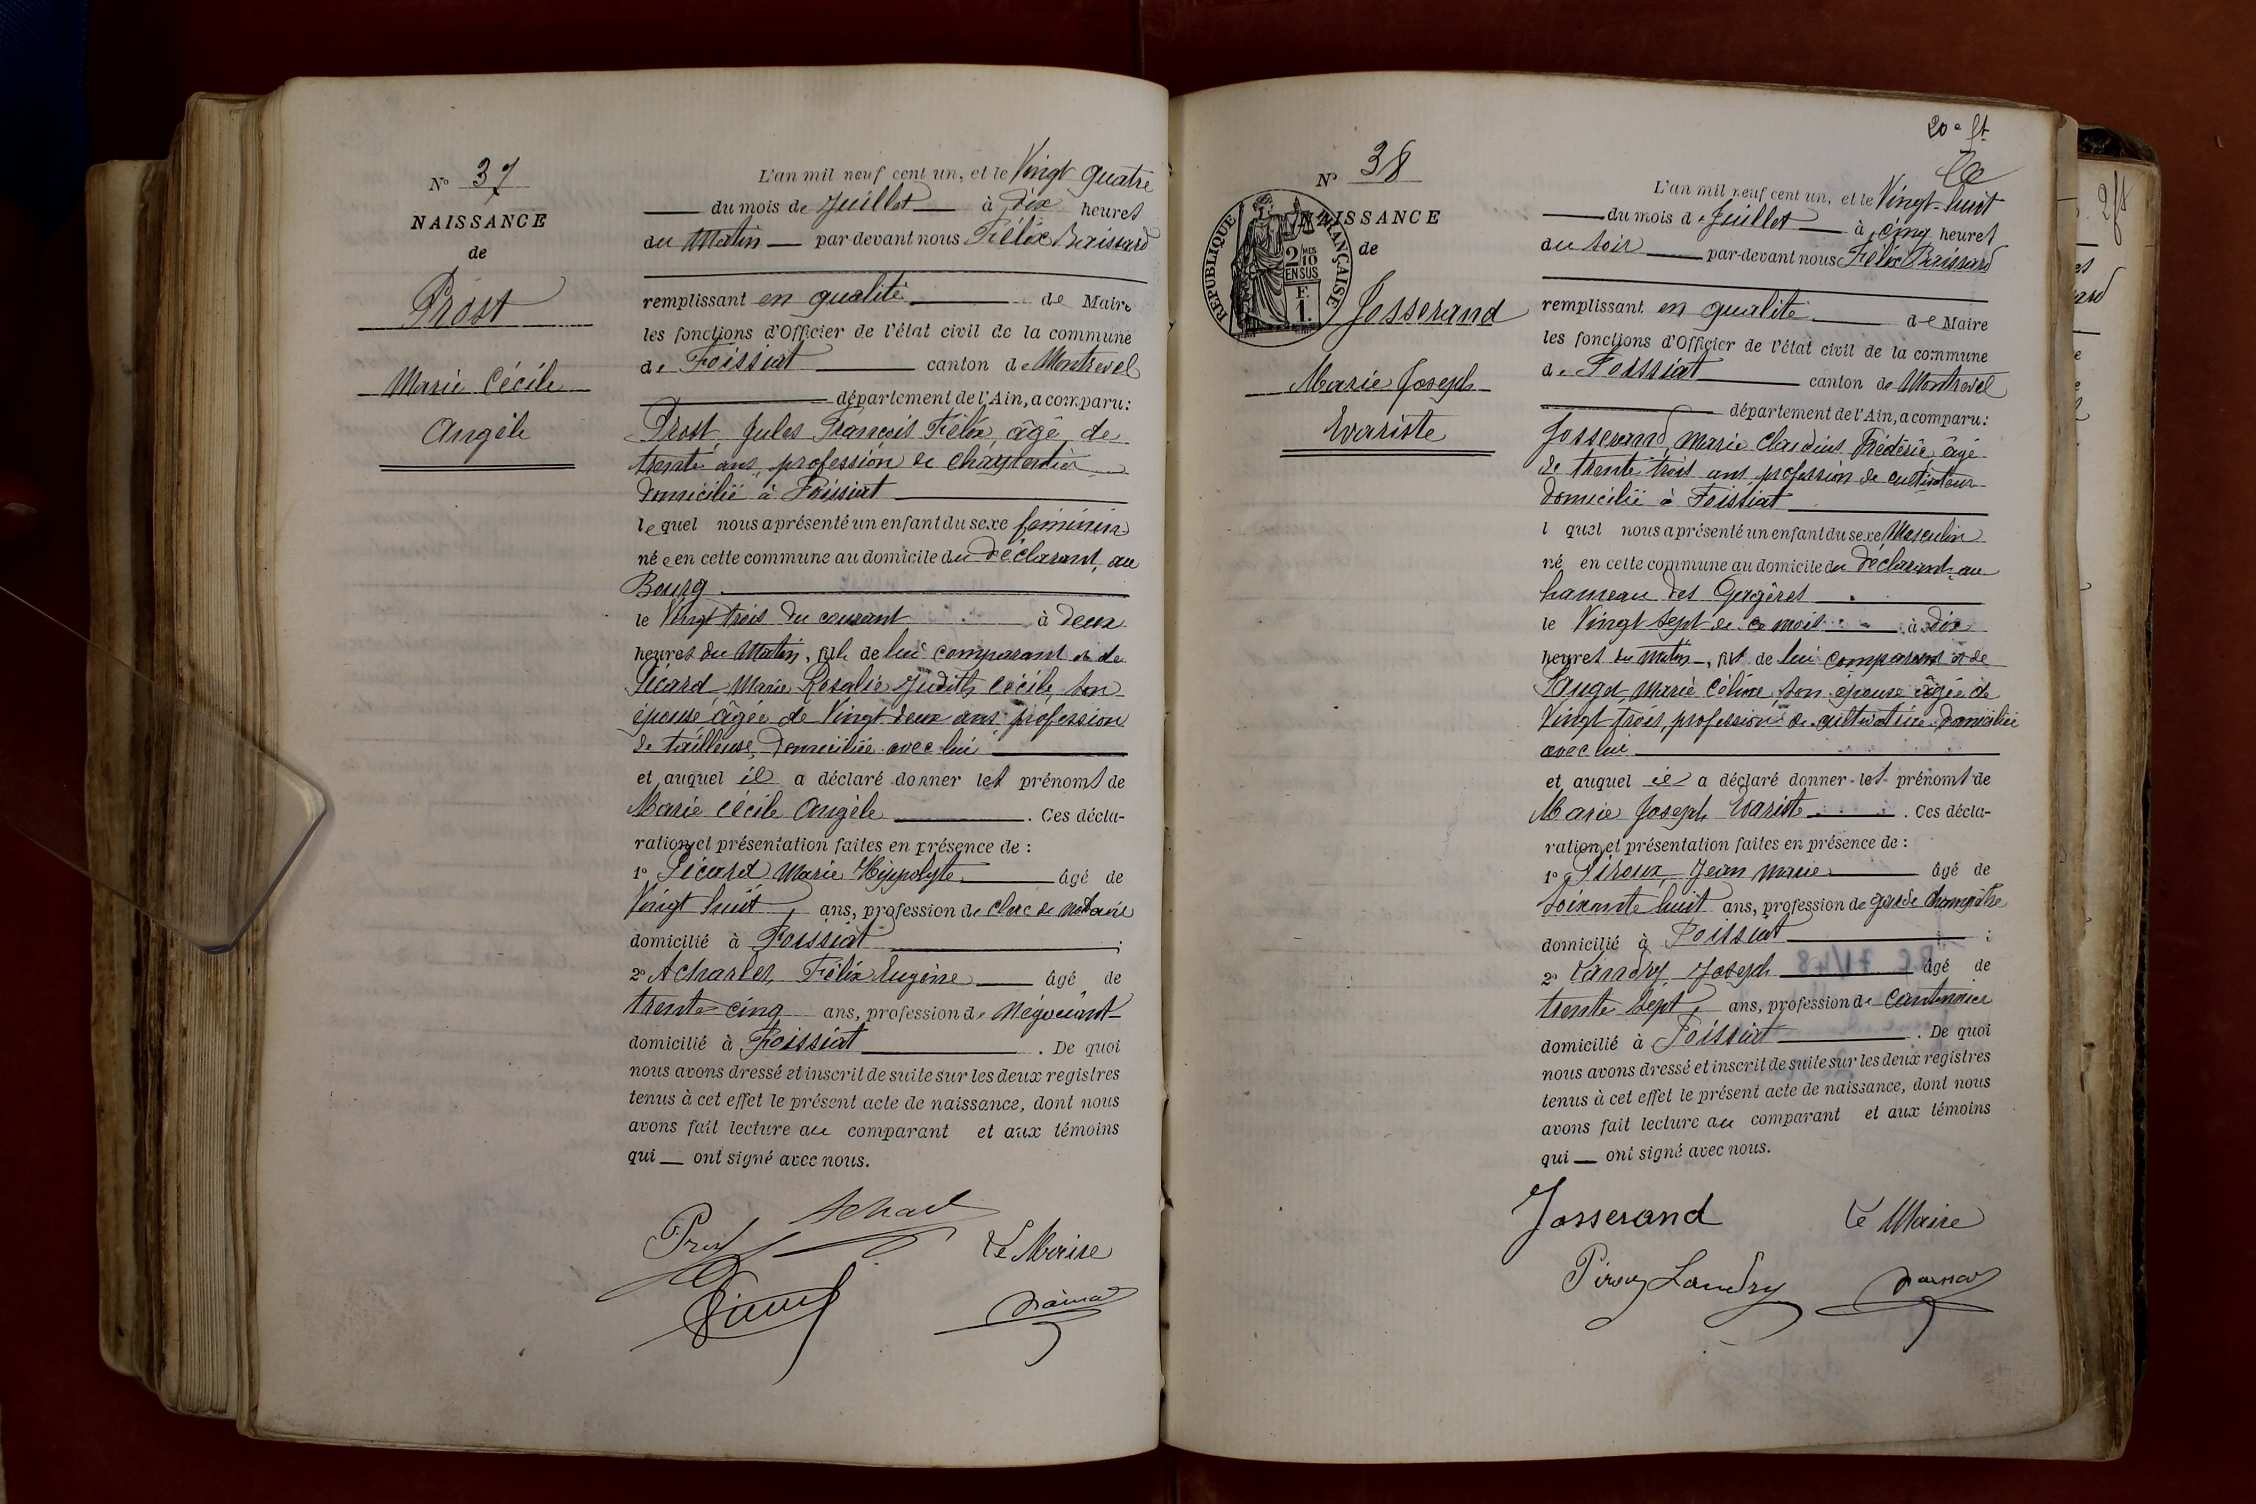 N° 37
NAISSANCE
de
Prost
Marie Cécile
Angèle
L'an mil neuf cent un, et le Vingt quatre
du mois de Juillet à Dix heures
du Matin par-devant nous Félix
remplissant en qualité de Maire
les fonctions d'Officier de l'état civil de la commune
de Foissiat canton de Montrevel
département de l'Ain, a comparu:
Prost, Jules François Félix, âgé de
trente ans, profession de charpentier
domicilié à Foissiat
lequel nous a présenté un enfant du sexe féminin
née en cette commune au domicile du déclarant, au
Bourg
le Vingt trois du courant à deux
heures du Matin, fille de lui comparant et de
Picard Marie Rosalie Judith Cécile, son
épouse âgée de Vingt deux ans profession
de tailleuse, domiciliée avec lui
et auquel il a déclaré donner les prénoms de
Marie Cécile Angèle. Ces décla-
ration et présentation faites en présence de :
1° Picard Marie Hippolyte âgé de
Vingt huit, ans, profession de clerc de notaire
domicilié à Foissiat ;
2° Acharles, Félix Eugène âgé de
trente cinq ans, profession de Négociant
domicilié à Foissiat. De quoi
nous avons dressé et inscrit de suite sur les deux registres
tenus à cet effet le présent acte de naissance, dont nous
avons fait lecture au comparant et aux témoins
qui ont signé avec nous.
Prost
Le Maire
20e ft
N° 38
RÉPUBLIQUE FRANÇAISE
2/10 EN SUS
F. 1.
NAISSANCE
de
Josserand
Marie Joseph
Evariste
L'an mil neuf cent un, et le Vingt-huit
du mois de Juillet à cinq heures
du soir par-devant nous Félix
remplissant en qualité de Maire
les fonctions d'Officier de l'état civil de la commune
de Foissiat canton de Montrevel
département de l'Ain, a comparu:
Josserand, Marie Claudius Frédéric âgé
de trente trois ans profession de cultivateur
domicilié à Foissiat
l quel nous a présenté un enfant du sexe Masculin
né en cette commune au domicile du déclarant, au
hameau des
le Vingt sept de ce mois à dix
heures du matin, fils de lui comparant et de
Marie Céline, son épouse âgée de
Vingt trois, profession de cultivatrice domiciliée
avec lui
et auquel il a déclaré donner les prénoms de
Marie Joseph Evariste. Ces décla-
ration et présentation faites en présence de :
1° Piroux, Jean Marie âgé de
soixante huit ans, profession de garde champêtre
domicilié à Foissiat ;
2° Landry, Joseph âgé de
trente sept, ans, profession de cantonnier
domicilié à Foissiat. De quoi
nous avons dressé et inscrit de suite sur les deux registres
tenus à cet effet le présent acte de naissance, dont nous
avons fait lecture au comparant et aux témoins
qui ont signé avec nous.
Josserand
Le Maire
Piroux Landry